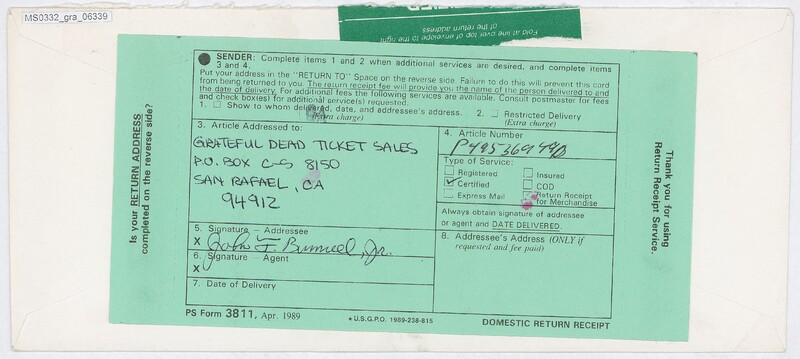 MS0332_gra_06339
Fold at line over top of envelope to the right
of the return address
SENDER: Complete items 1 and 2 when additional services are desired, and complete items
3 and 4.
Put your address in the "RETURN TO" Space on the reverse side. Failure to do this will prevent this card
from being returned to you. The return receipt fee will provide you the name of the person delivered to and
the date of delivery. For additional fees the following services are available. Consult postmaster for fees
and check box(es) for additional service(s) requested.
1. ☐ Show to whom delivered, date, and addressee's address. 2. ☐ Restricted Delivery
(Extra charge) (Extra charge)
3. Article Addressed to:
GRATEFUL DEAD TICKET SALES
P.O. BOX C-S 8150
SAN RAFAEL, CA
94912
4. Article Number
Type of Service:
☐ Registered ☐ Insured
☑ Certified ☐ COD
☐ Express Mail ☐ Return Receipt
for Merchandise
Always obtain signature of addressee
or agent and DATE DELIVERED.
5. Signature — Addressee
X John F.
6. Signature — Agent
X
7. Date of Delivery
8. Addressee's Address (ONLY if
requested and fee paid)
PS Form 3811, Apr. 1989 ★ U.S.G.P.O. 1989-238-815 DOMESTIC RETURN RECEIPT
Is your RETURN ADDRESS
completed on the reverse side?
Thank you for using
Return Receipt Service.